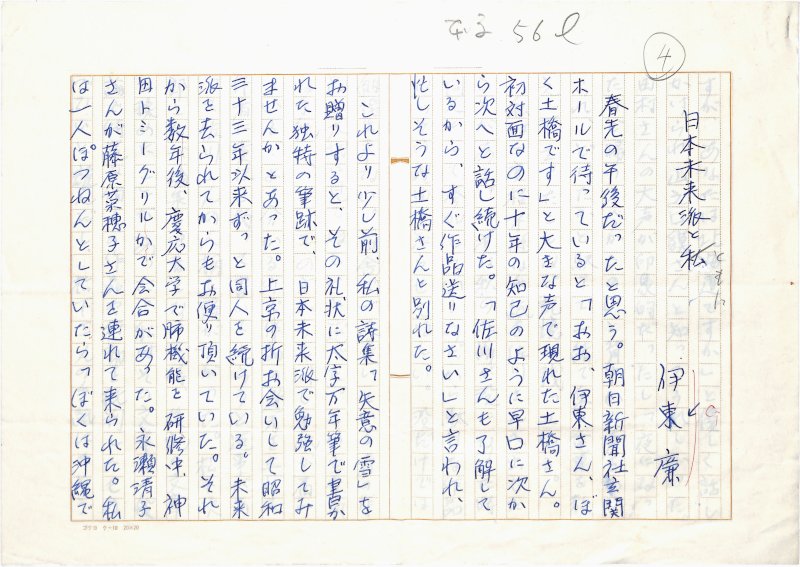 56ℓ
4
日本未来派と私
伊東 廉
春先の午後だったと思う。朝日新聞社玄関
ホールで待っていると「おお、伊東さん、ぼ
く土橋です」と大きな声で現れた土橋さん。
初対面なのに十年の知己のように早口に次か
ら次へと話し続けた。「佐川さんも了解して
いるから、すぐ作品送りなさい」と言われ、
忙しそうな土橋さんと別れた。
これより少し前、私の詩集「失意の雪」を
お贈りすると、その礼状に太字万年筆で書か
れた独特の筆跡で、日本未来派で勉強してみ
ませんかとあった。上京の折お会いして昭和
三十三年以来ずっと同人を続けている。未来
派を去られてからもお便り頂いていた。それ
から数年後、慶応大学で肺機能を研修中、神
田トミーグリルかで会合があった。永瀬清子
さんが藤原菜穂子さんを連れて来られた。私
は一人ぽつねんとしていたら「ぼくは沖縄で
コクヨ ケ-10 20×20